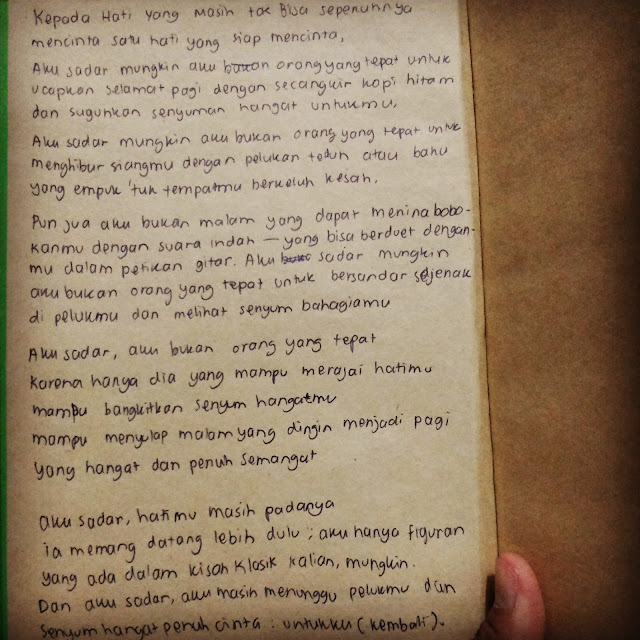 Kepada Hati yang masih tak Bisa sepenuhnya
mencinta satu hati yang siap mencinta,
Aku sadar mungkin aku bukan orang yang tepat untuk
ucapkan selamat pagi dengan secangkir kopi hitam
dan suguhkan senyuman hangat untukmu.
Aku sadar mungkin aku bukan orang yang tepat untuk
menghibur siangmu dengan pelukan teduh atau bahu
yang empuk 'tuk tempatmu berkeluh kesah.
Pun jua aku bukan malam yang dapat menina bobo-
kanmu dengan suara indah — yang bisa berduet dengan-
mu dalam petikan gitar. Aku sadar mungkin
aku bukan orang yang tepat untuk bersandar sejenak
di pelukmu dan melihat senyum bahagiamu
Aku sadar, aku bukan orang yang tepat
karena hanya dia yang mampu merajai hatimu
mampu bangkitkan senyum hangatmu
mampu menyulap malam yang dingin menjadi pagi
yang hangat dan penuh semangat
aku sadar, hatimu masih padanya
ia memang datang lebih dulu ; aku hanya figuran
yang ada dalam kisah klasik kalian, mungkin.
Dan aku sadar, aku masih menunggu pelukmu dan
senyum hangat penuh cinta : untukku (kembali).